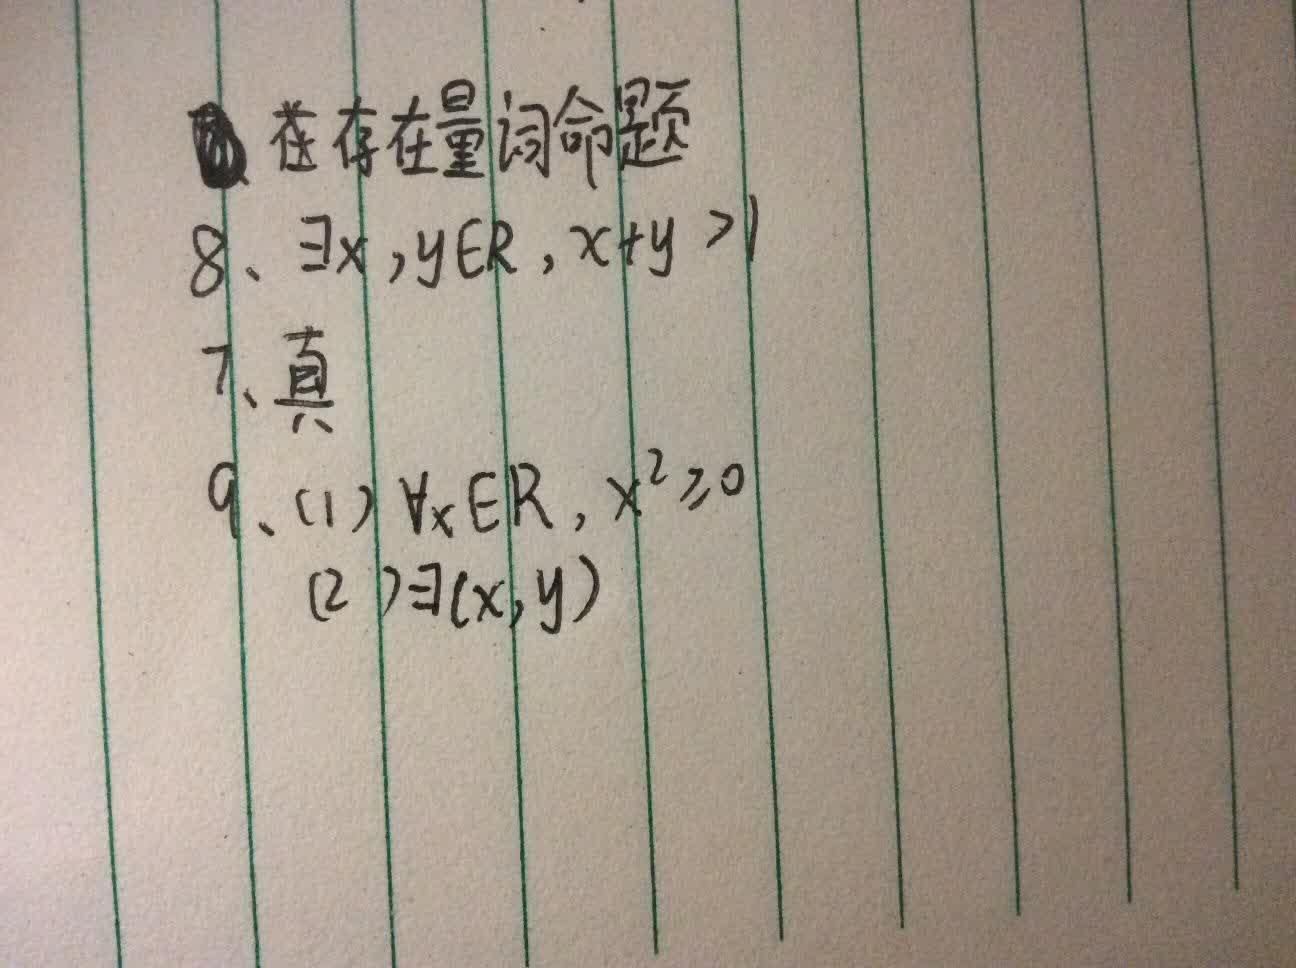 存在量词命题
8、∃x,y∈R,x+y>1
7、真
9、(1)∀x∈R,x²≥0
(2)∃(x,y)